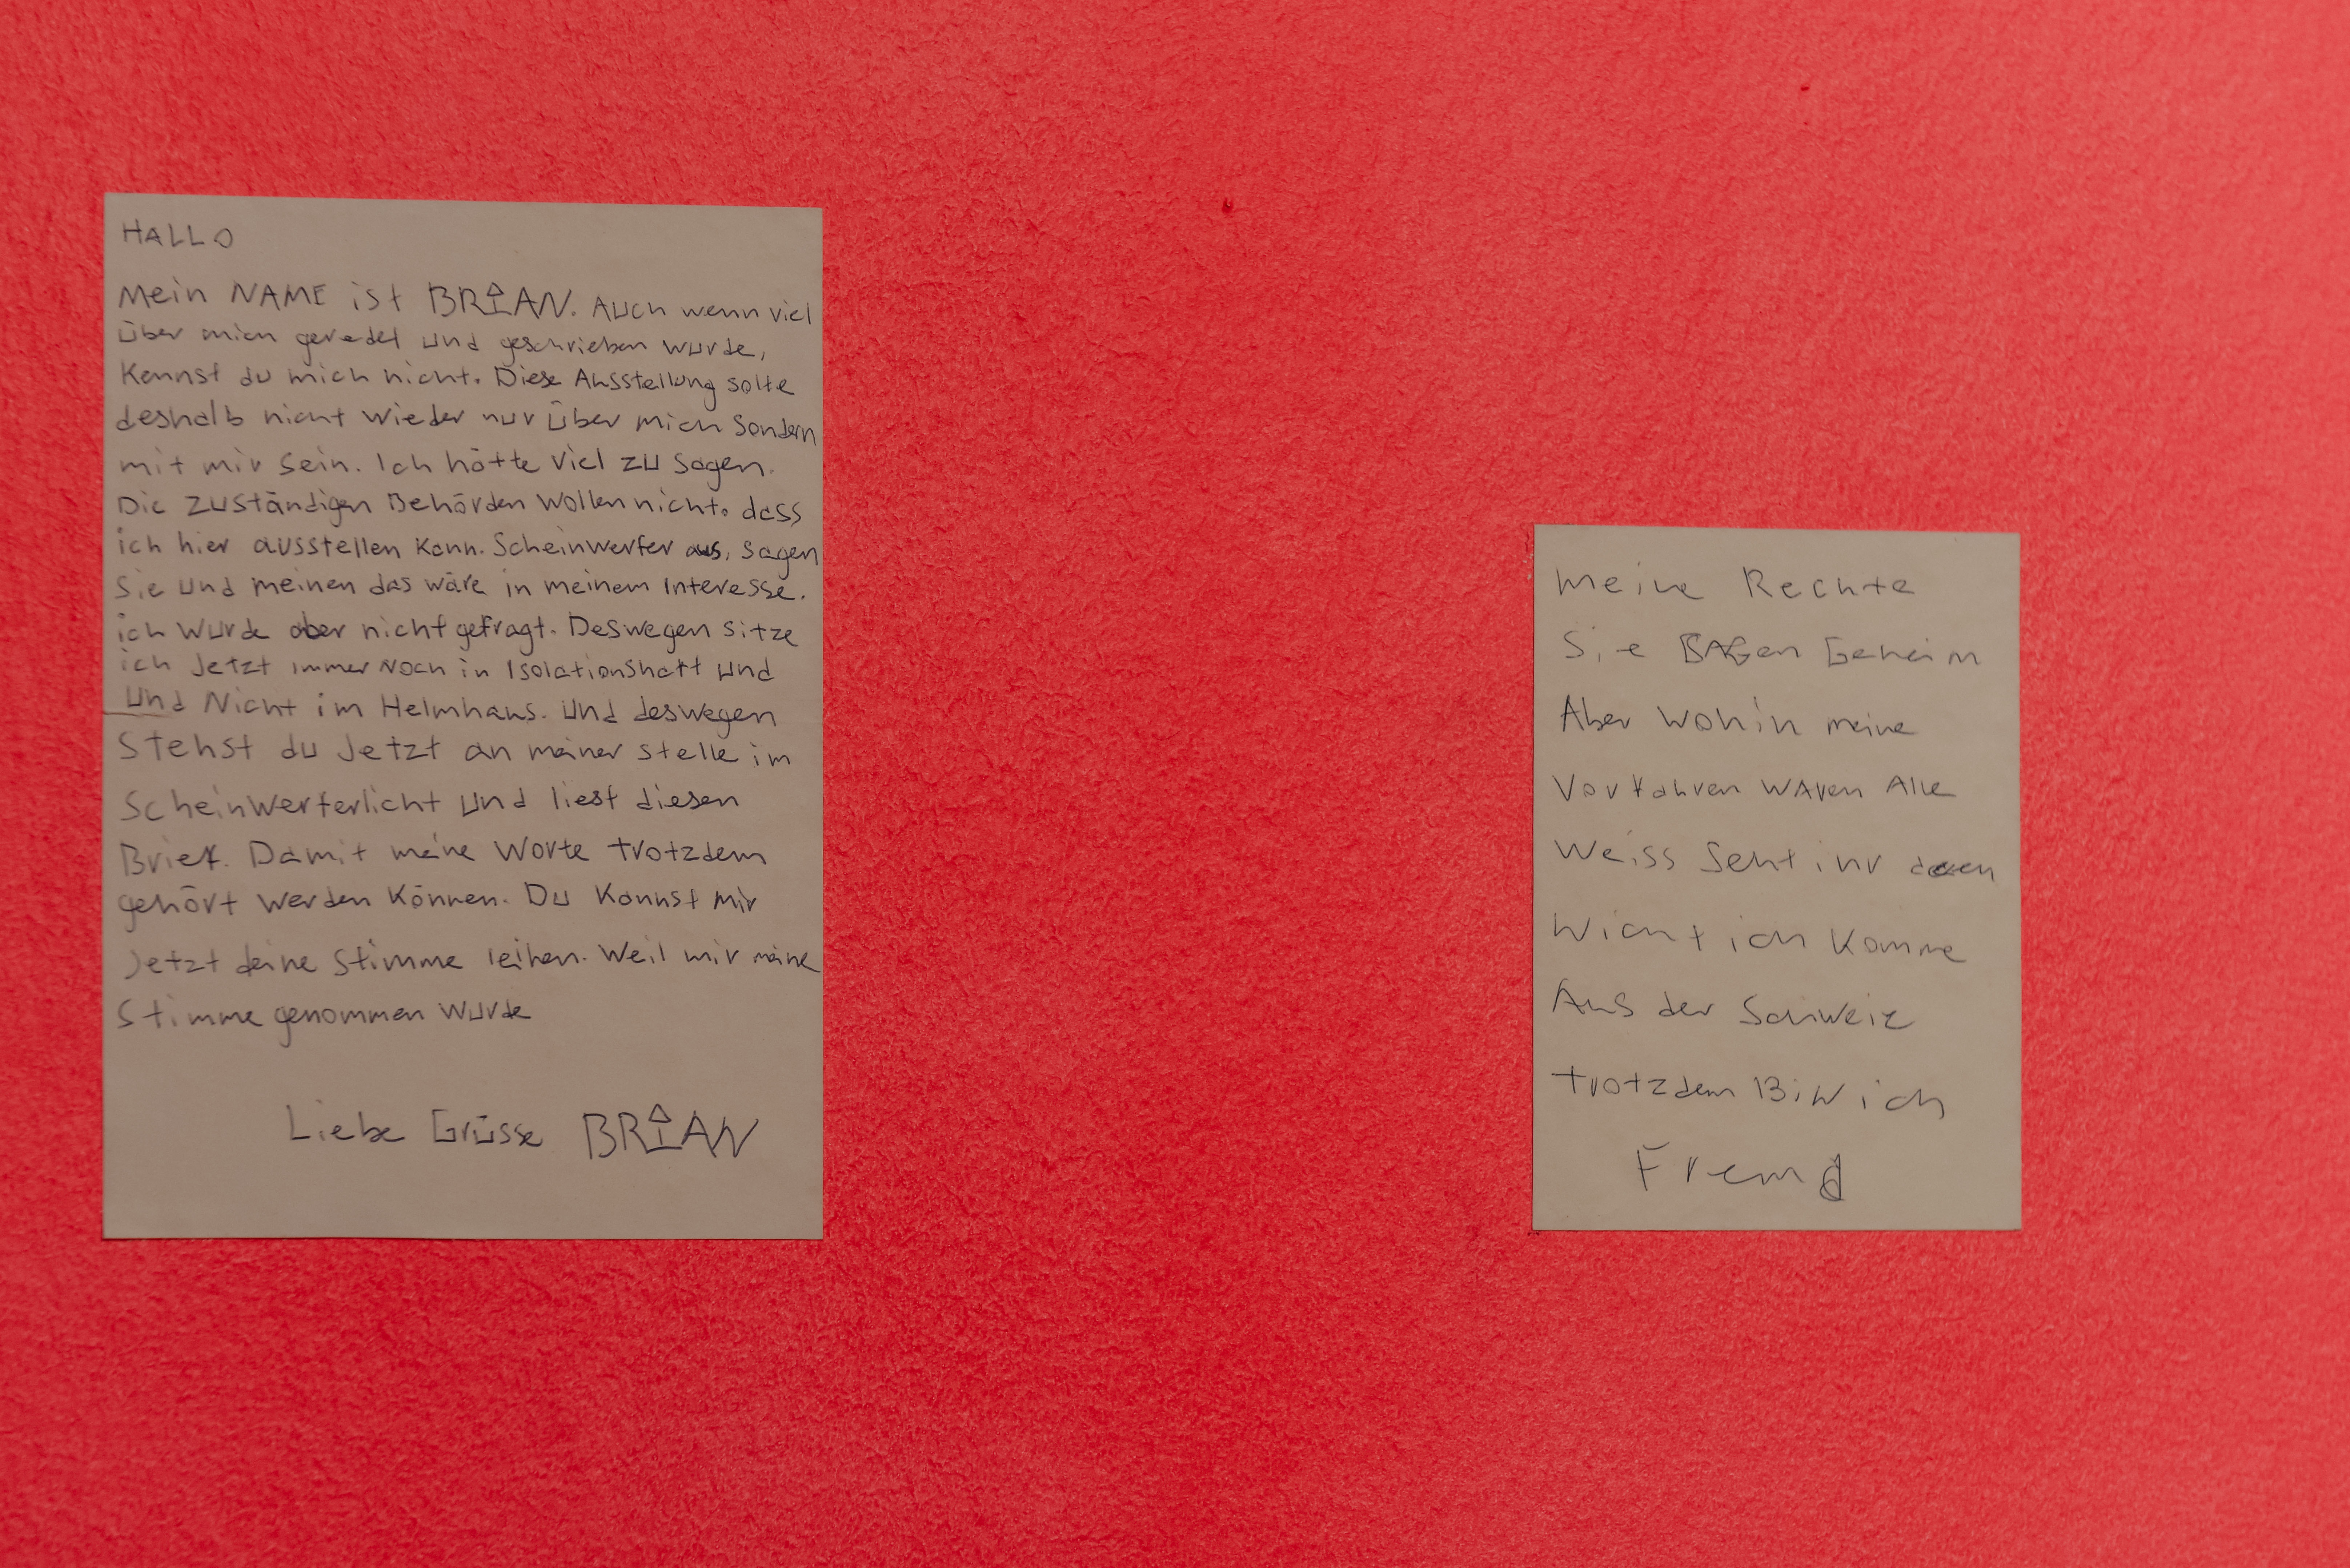 HALLO
Mein NAME ist BRIAN. Auch wenn viel
über mich geredet und geschrieben wurde,
Kennst du mich nicht. Diese Ausstellung solte
deshalb nicht wieder nur über mich sondern
mit mir sein. Ich hätte viel zu sagen.
Die zuständigen Behörden wollen nicht. dass
ich hier ausstellen kann. Scheinwerfer aus, sagen
Sie und meinen das wäre in meinem Interesse.
ich wurde aber nicht gefragt. Deswegen sitze
ich Jetzt immer Noch in Isolationshaft und
und Nicht im Helmhaus. und deswegen
Stehst du Jetzt an meiner stelle im
Scheinwerferlicht und liest diesen
Brief. Damit meine Worte trotzdem
gehört werden können. Du Kannst mir
Jetzt deine Stimme leihen. Weil mir meine
Stimme genommen wurde
Liebe Grüsse BRIAN
Meine Rechte
Sie SAGen Geheim
Aber Wohin meine
Vorfahren WAren Alle
Weiss Seht ihr
Nicht ich Komme
Aus der Schweiz
trotzdem BiN ich
Fremd